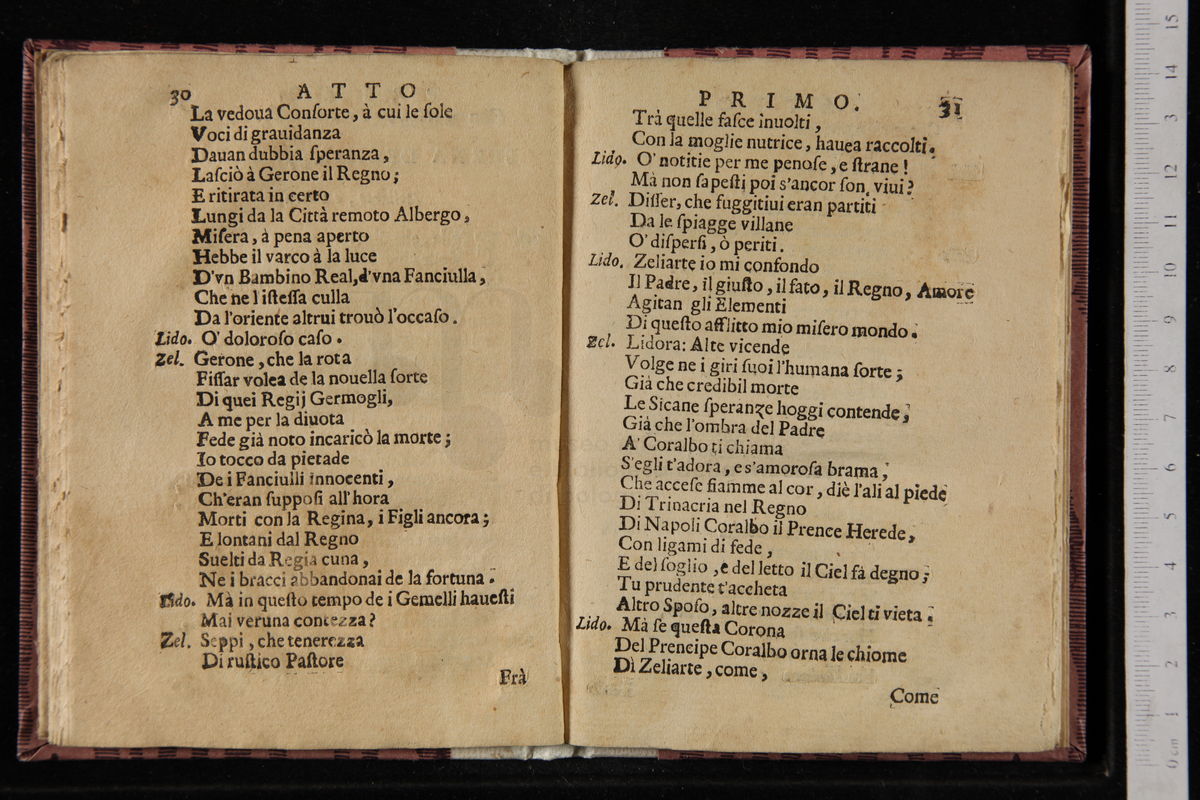 30 ATTO
La vedoua Conſorte, à cui le ſole
Voci di grauidanza
Dauan dubbia ſperanza,
Laſciò à Gerone il Regno;
E ritirata in certo
Lungi da la Città remoto Albergo,
Miſera, à pena aperto
Hebbe il varco à la luce
D'vn Bambino Real, d'vna Fanciulla,
Che ne l iſteſſa culla
Da l'oriente altrui trouò l'occaſo.
Lido. O' doloroſo caſo.
Zel. Gerone, che la rota
Fiſſar volea de la nouella ſorte
Di quei Regij Germogli,
A me per la diuota
Fede già noto incaricò la morte;
Io tocco da pietade
De i Fanciulli innocenti,
Ch'eran ſuppoſi all'hora
Morti con la Regina, i Figli ancora;
E lontani dal Regno
Suelti da Regia cuna,
Ne i bracci abbandonai de la fortuna.
Lido. Mà in queſto tempo de i Gemelli haueſti
Mai veruna contezza?
Zel. Seppi, che tenerezza
Di ruſtico Paſtore
Frà
PRIMO. 31
Trà quelle faſce inuolti,
Con la moglie nutrice, hauea raccolti.
Lido. O' notitie per me penoſe, e ſtrane!
Mà non ſapeſti poi s'ancor ſon viui?
Zel. Diſſer, che fuggitiui eran partiti
Da le ſpiagge villane
O' diſperſi, ò periti.
Lido. Zeliarte io mi confondo
Il Padre, il giuſto, il fato, il Regno, Amore
Agitan gli Elementi
Di queſto afflitto mio miſero mondo.
Zel. Lidora: Alte vicende
Volge ne i giri ſuoi l'humana ſorte;
Già che credibil morte
Le Sicane ſperanze hoggi contende;
Già che l'ombra del Padre
A' Coralbo ti chiama
S'egli t'adora, e s'amoroſa brama;
Che acceſe fiamme al cor, diè l'ali al piede
Di Trinacria nel Regno
Di Napoli Coralbo il Prence Herede,
Con ligami di fede,
E del ſoglio, e del letto il Ciel fà degno;
Tu prudente t'accheta
Altro Spoſo, altre nozze il Ciel ti vieta.
Lido. Mà ſe queſta Corona
Del Prencipe Coralbo orna le chiome
Dì Zeliarte, come,
Come
0 cm 1 2 3 4 5 6 7 8 9 10 11 12 13 14 15